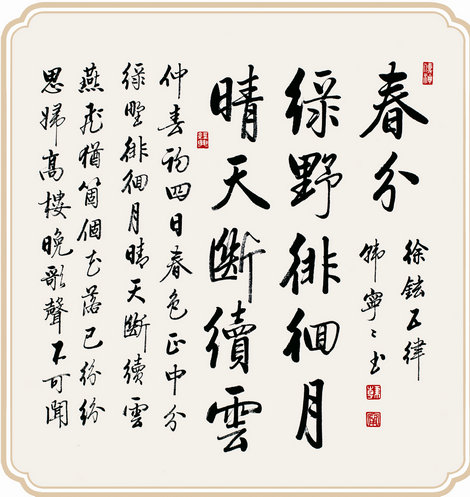 春分
徐鉉五律
韓寧々書
綠野徘徊月
晴天斷續雲
仲春初四日春色正中分
綠野徘徊月晴天斷續雲
燕飛猶箇個花落已紛紛
思婦高樓晚歌聲不可聞